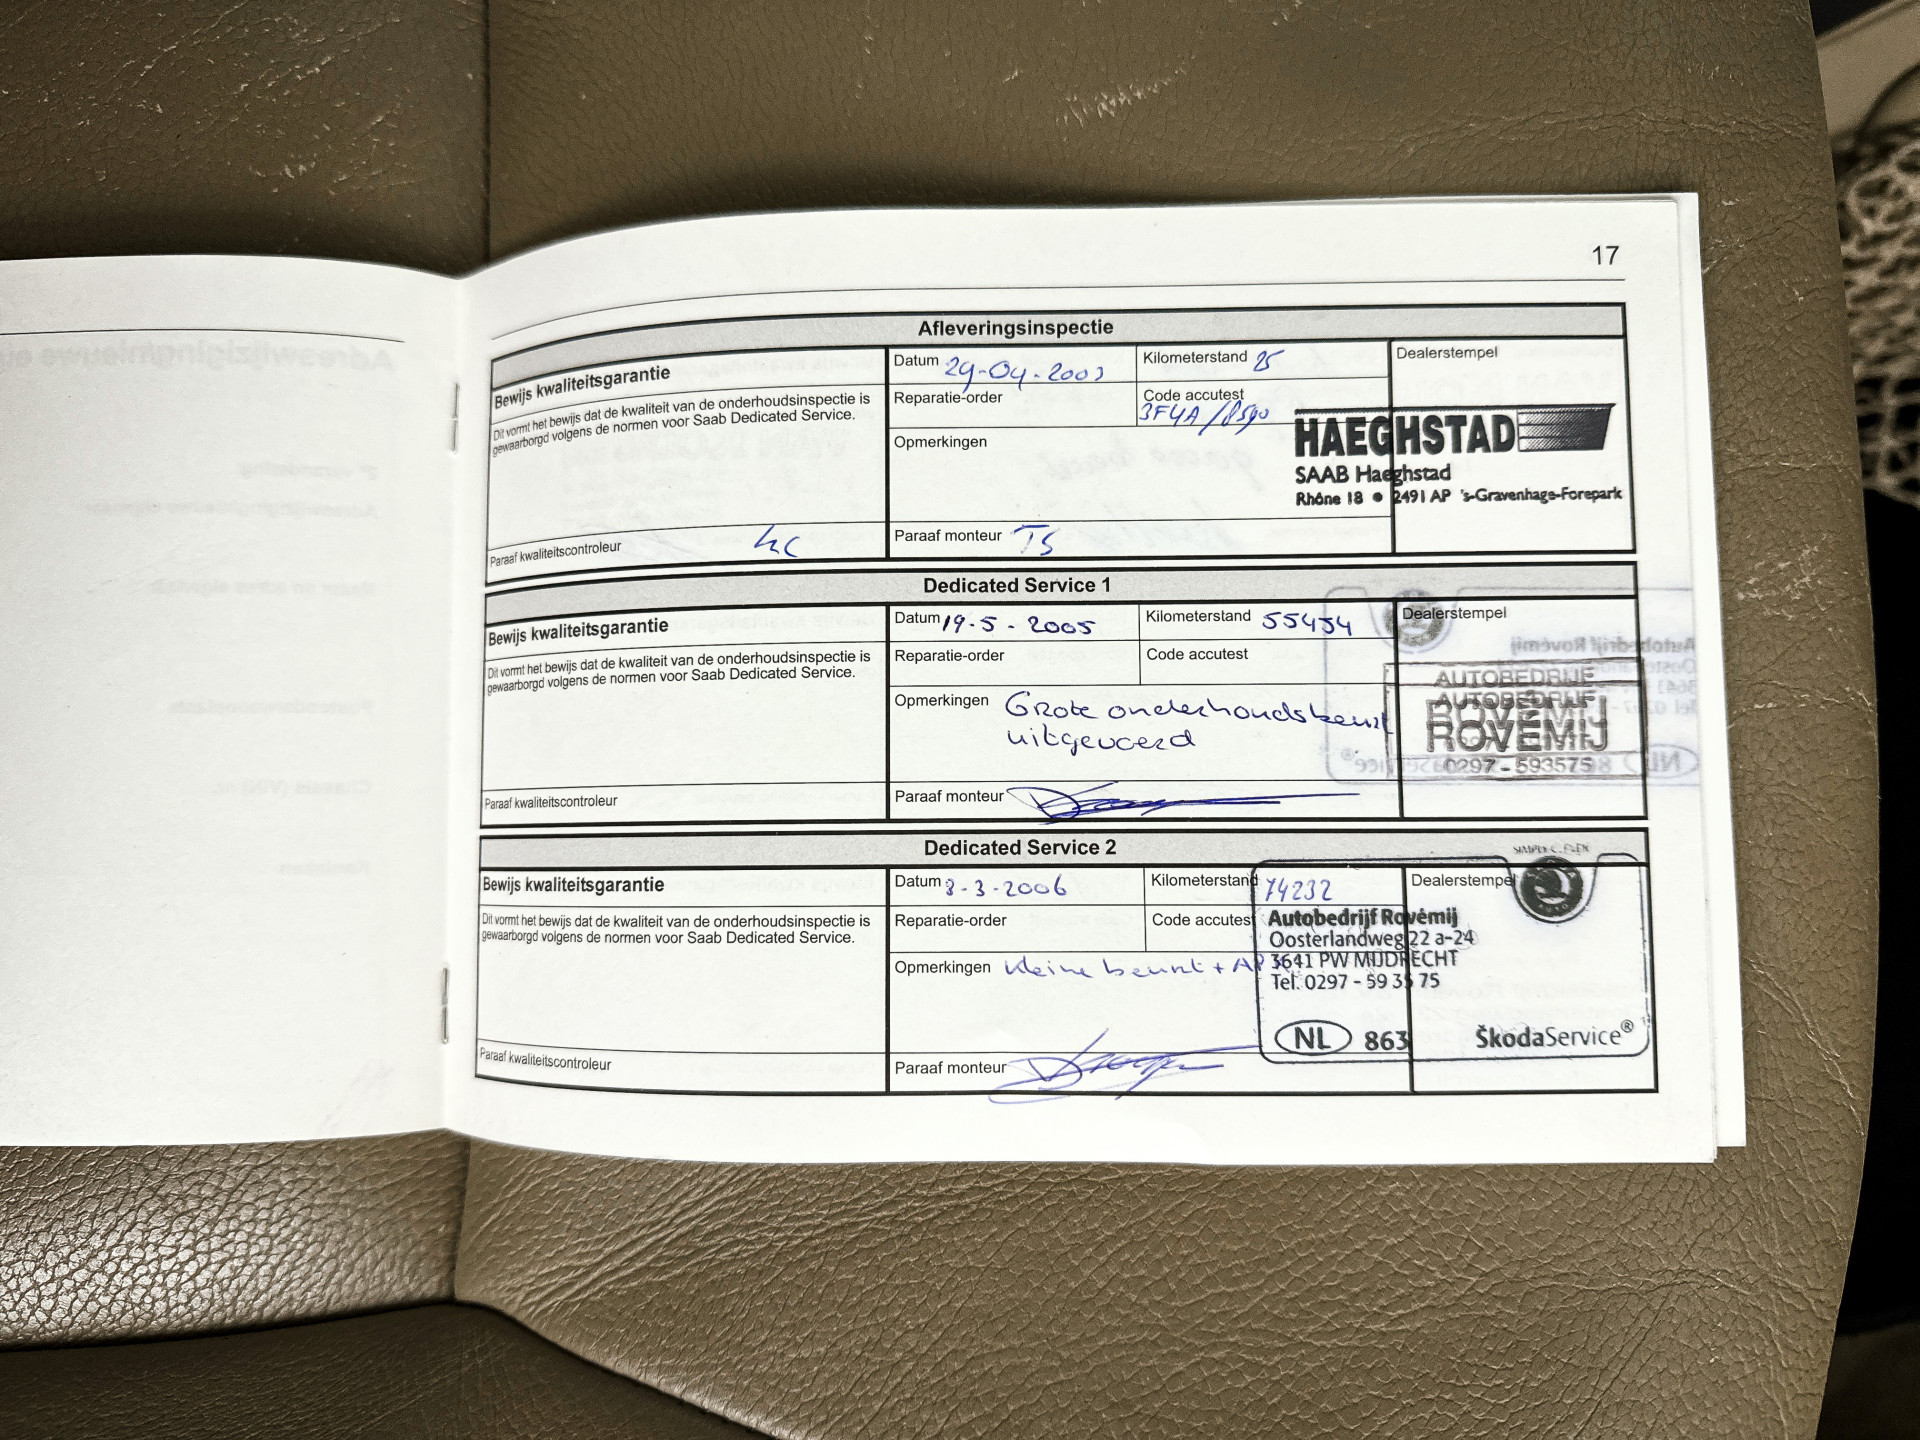 17
Afleveringsinspectie
Bewijs kwaliteitsgarantie
Dit vormt het bewijs dat de kwaliteit van de onderhoudsinspectie is
gewaarborgd volgens de normen voor Saab Dedicated Service.
Paraaf kwaliteitscontroleur
Datum 29-04-2003
Kilometerstand 25
Reparatie-order
Code accutest
3F4A
Opmerkingen
Paraaf monteur TS
Dealerstempel
HAEGHSTAD
SAAB Haeghstad
Rhône 18 • 2491 AP 's-Gravenhage-Forepark
Dedicated Service 1
Bewijs kwaliteitsgarantie
Dit vormt het bewijs dat de kwaliteit van de onderhoudsinspectie is
gewaarborgd volgens de normen voor Saab Dedicated Service.
Paraaf kwaliteitscontroleur
Datum 19-5-2005
Kilometerstand 55454
Reparatie-order
Code accutest
Opmerkingen Grote onderhoudsbeurt
uitgevoerd
Paraaf monteur
Dealerstempel
AUTOBEDRIJF
AUTOBEDRIJF
ROVEMIJ
ROVEMIJ
0297-593575
Dedicated Service 2
Bewijs kwaliteitsgarantie
Dit vormt het bewijs dat de kwaliteit van de onderhoudsinspectie is
gewaarborgd volgens de normen voor Saab Dedicated Service.
Paraaf kwaliteitscontroleur
Datum 8-3-2006
Kilometerstand 74232
Reparatie-order
Code accutest
Opmerkingen kleine beurt + APK
Paraaf monteur
Dealerstempel
Autobedrijf Rovémij
Oosterlandweg 22 a-24
3641 PW MIJDRECHT
Tel. 0297 - 59 35 75
NL 863 ŠkodaService®